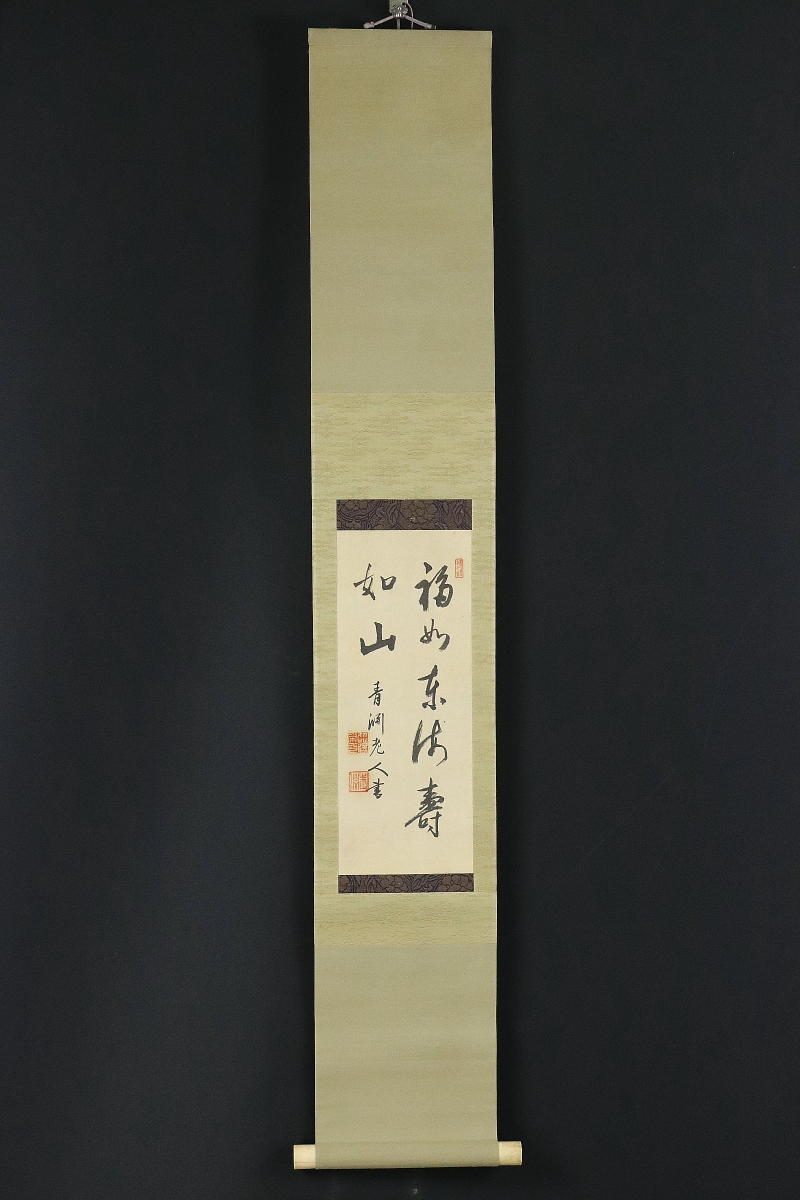 福如東海壽
如山
青洞老人書